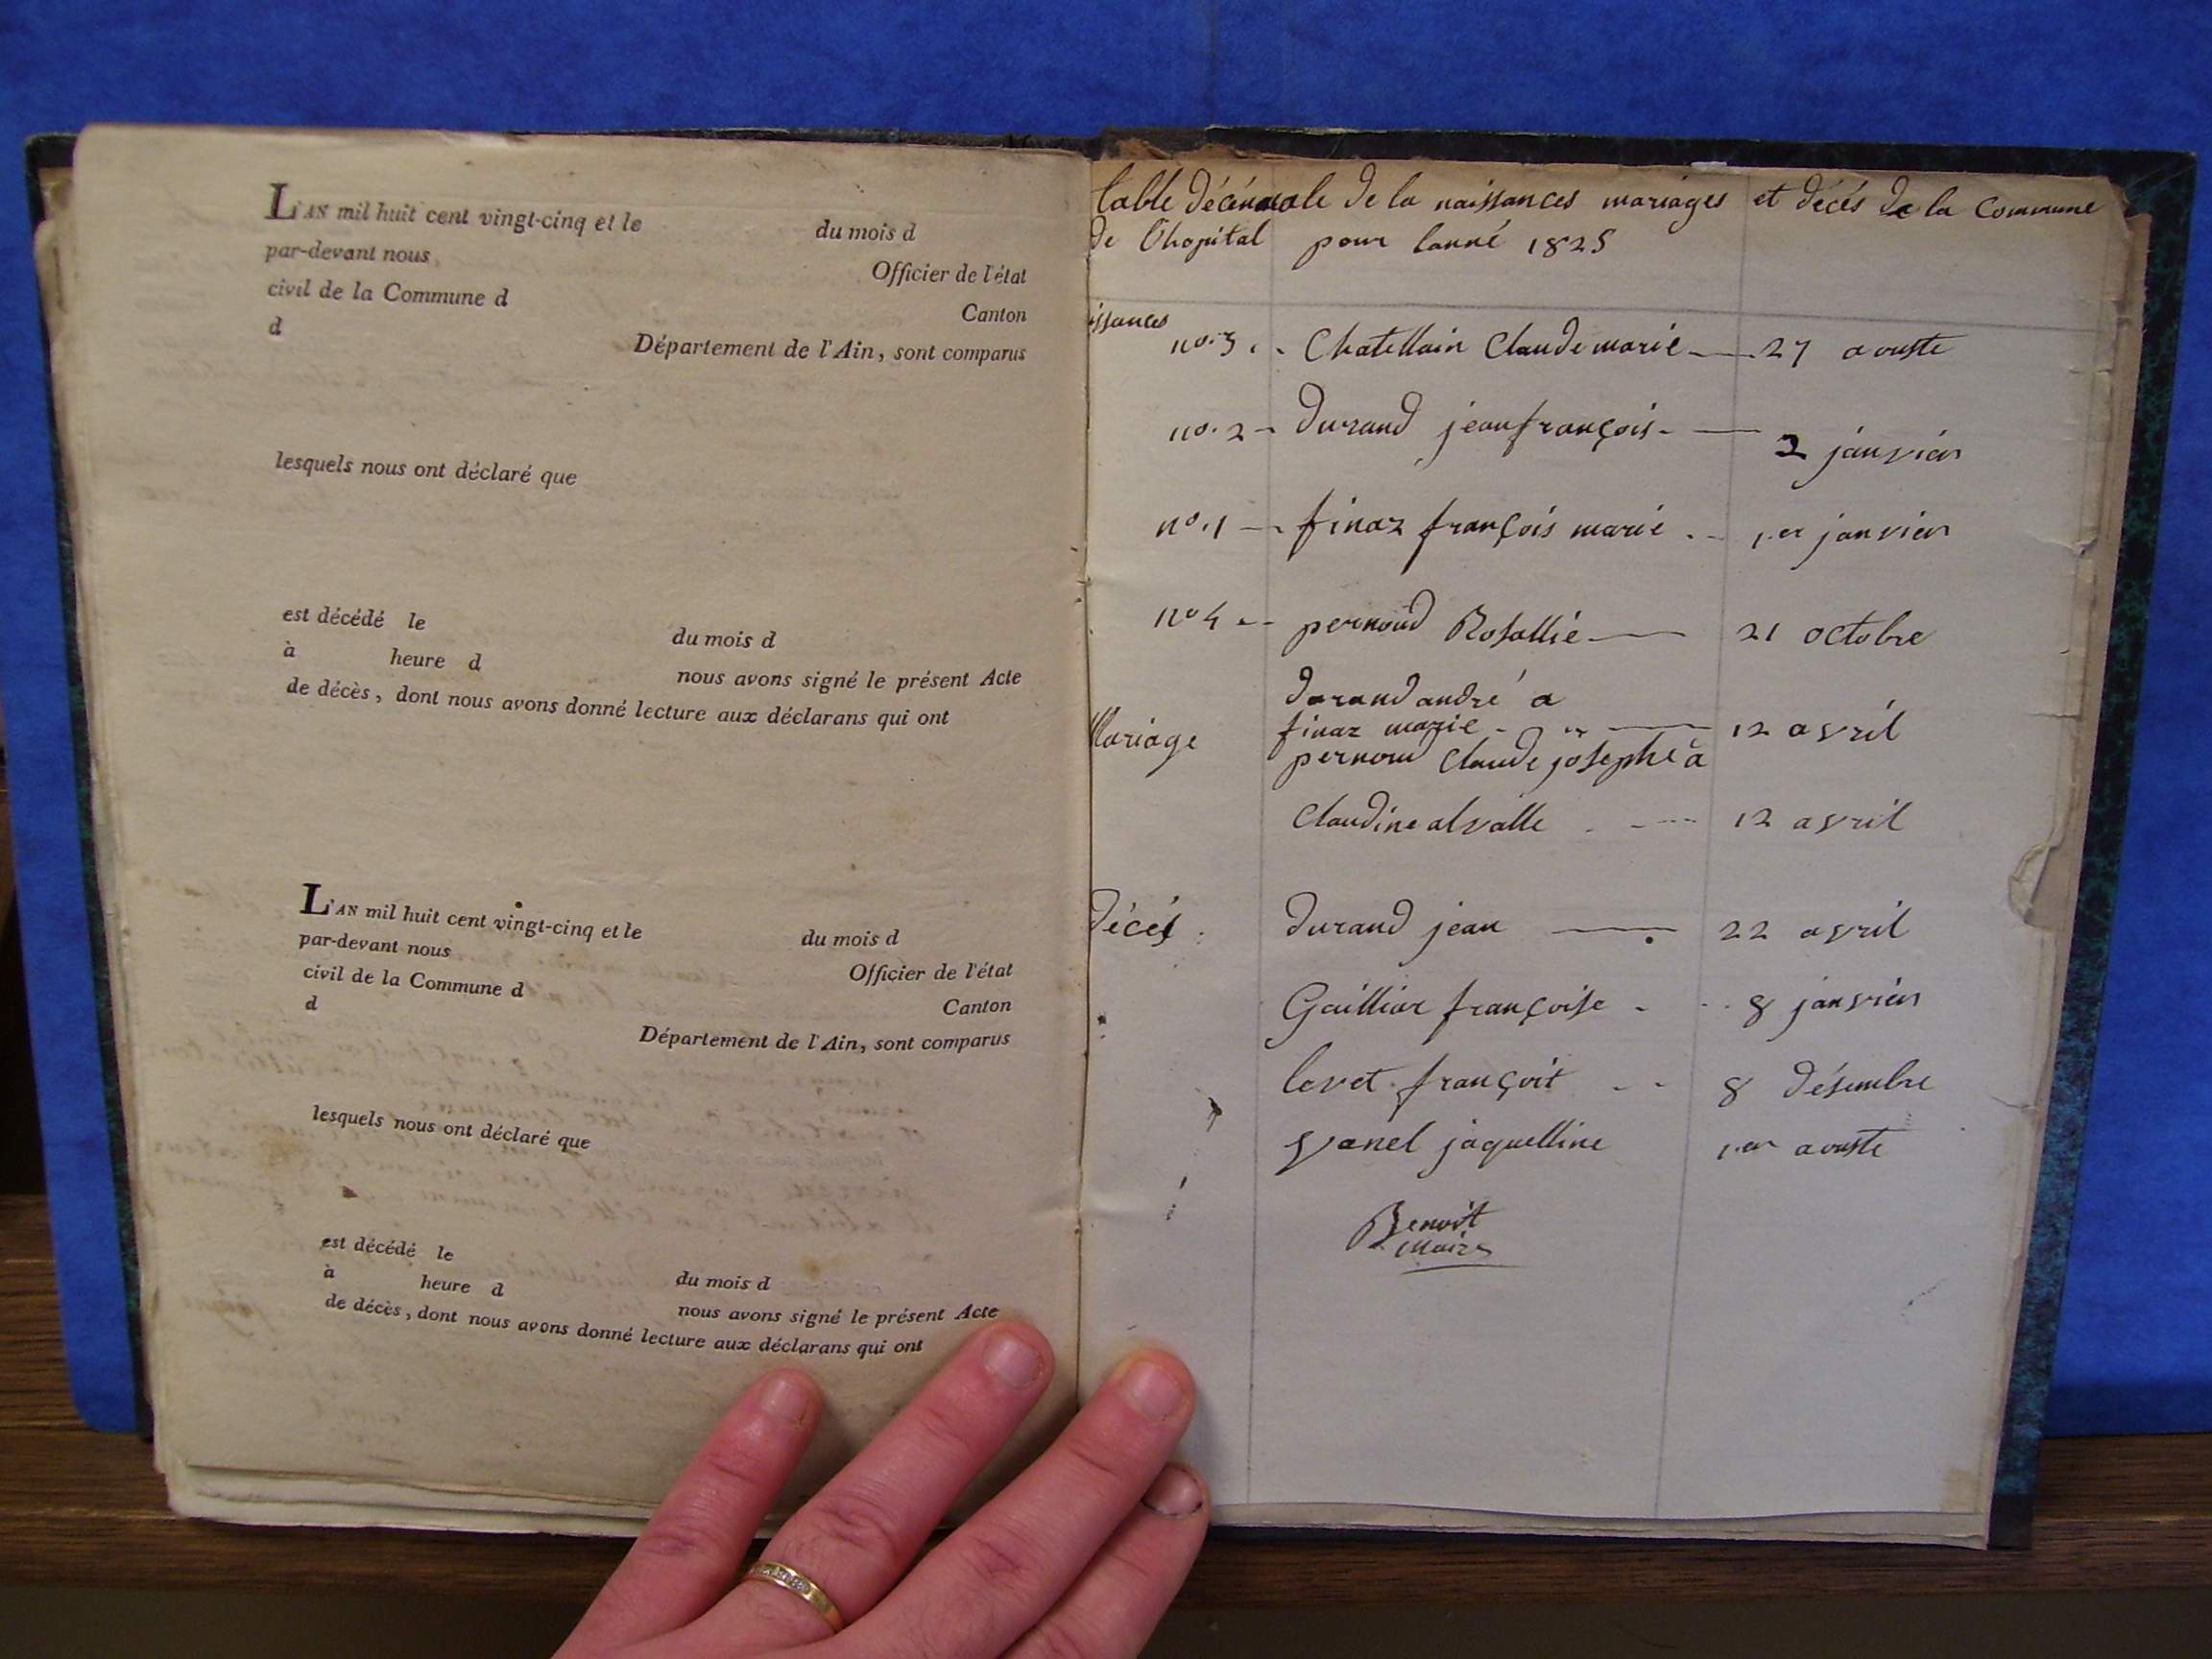 L'AN mil huit cent vingt-cinq et le du mois d
par-devant nous Officier de l'état
civil de la Commune d Canton
d Département de l'Ain, sont comparus
lesquels nous ont déclaré que
est décédé le du mois d
à heure d nous avons signé le présent Acte
de décès, dont nous avons donné lecture aux déclarans qui ont
L'AN mil huit cent vingt-cinq et le du mois d
par-devant nous Officier de l'état
civil de la Commune d Canton
d Département de l'Ain, sont comparus
lesquels nous ont déclaré que
est décédé le du mois d
à heure d nous avons signé le présent Acte
de décès, dont nous avons donné lecture aux déclarans qui ont
table décennale de la naissances mariages et décés de la Commune
de l'hopital pour lanné 1825
issances
no. 3 Chatellain Claude marie 27 auste
no. 2 durand jean françois 2 janvier
no. 1 finaz françois marie 1.er janvier
no 4 pernoud Rosallie 21 octobre
durand andré a
Mariage finaz marie 12 avril
pernoud Claude josephe à
Claudine alvalle 12 avril
décés durand jean 22 avril
Gaillier françoise 8 janvier
levet françoit 8 désembre
vanel jaquelline 1.er auste
Benoit
maire